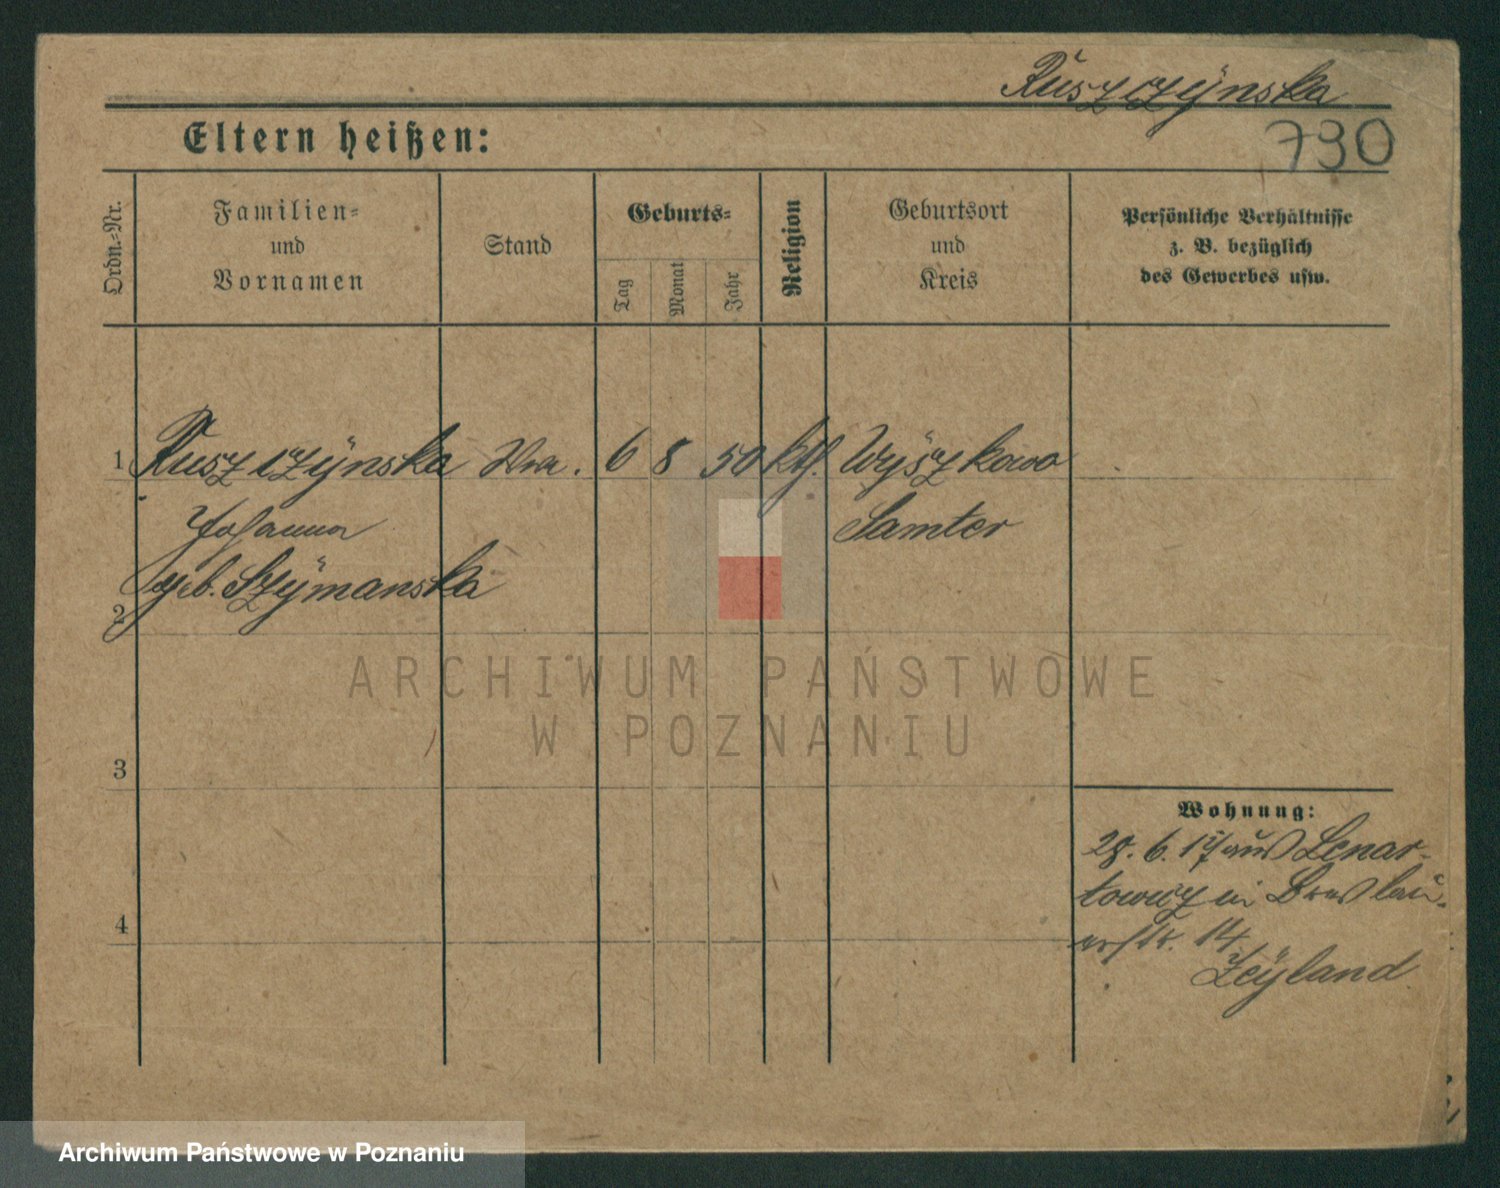 Ruszczÿnska
Eltern heißen:
790
Ordn.-Nr.
Familien-
und
Vornamen
Stand
Geburts-
Tag
Monat
Jahr
Religion
Geburtsort
und
Kreis
Persönliche Verhältnisse
z. B. bezüglich
des Gewerbes usw.
1 Ruszczÿnska Wwe. 6 8 50 kth. Wyszkowo
Johanna Samter
geb. Szÿmanska
2
3
4
Wohnung:
28. 6. 17 aus Lenar-
towicz in Breslau-
erstr. 14
Zeÿland
ARCHIWUM PAŃSTWOWE
W POZNANIU
Archiwum Państwowe w Poznaniu